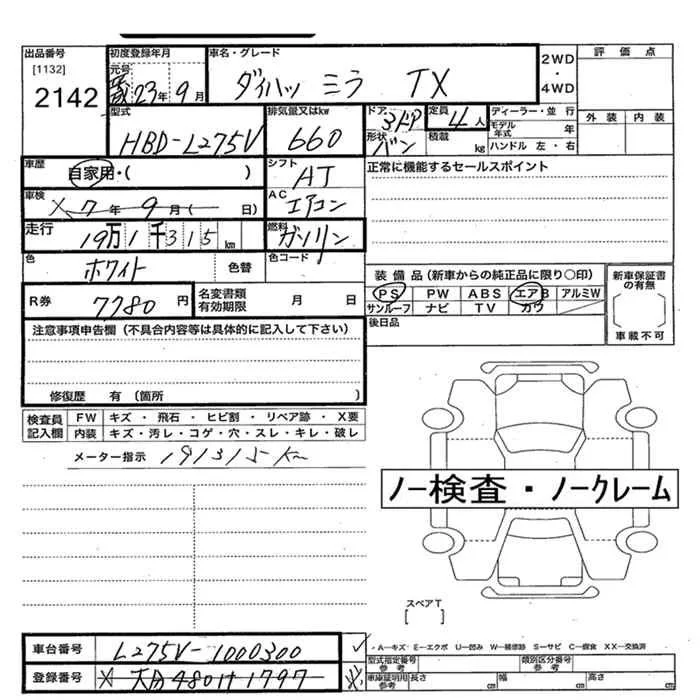 出品番号
[1132]
2142
初度登録年月
元号
23年 9月
車名・グレード
ダイハツ ミラ TX
2WD
・
4WD
評価点
外装 内装
型式
HBD-L275V
排気量又はkw
660
ドア
3ドア
形状
バン
定員
4人
積載
kg
ディーラー・並行
モデル年式 年
ハンドル 左・右
車歴
自家用・( )
シフト
AT
正常に機能するセールスポイント
車検
X 7年 9月( 日)
AC
エアコン
走行
19万1千315km
燃料
ガソリン
色
ホワイト
色替
色コード
装備品(新車からの純正品に限り○印)
PS PW ABS エアB アルミW
サンルーフ ナビ TV カワ
後日品
新車保証書の有無
車載不可
R券
7780円
名変書類有効期限 月 日
注意事項申告欄(不具合内容等は具体的に記入して下さい)
修復歴 有(箇所 )
検査員記入欄
FW キズ・飛石・ヒビ割・リペア跡・X要
内装 キズ・汚レ・コゲ・穴・スレ・キレ・破レ
メーター指示 191315km
ノー検査・ノークレーム
スペアT
[ ]
車台番号 L275V-1000300
登録番号
480け1797
A-キズ E-エクボ U-凹み W-補修跡 S-サビ C-腐食 XX-交換済
型式指定番号 参考
類別区分番号 参考
車庫証明用 参考 長さ cm 幅 cm 高さ cm